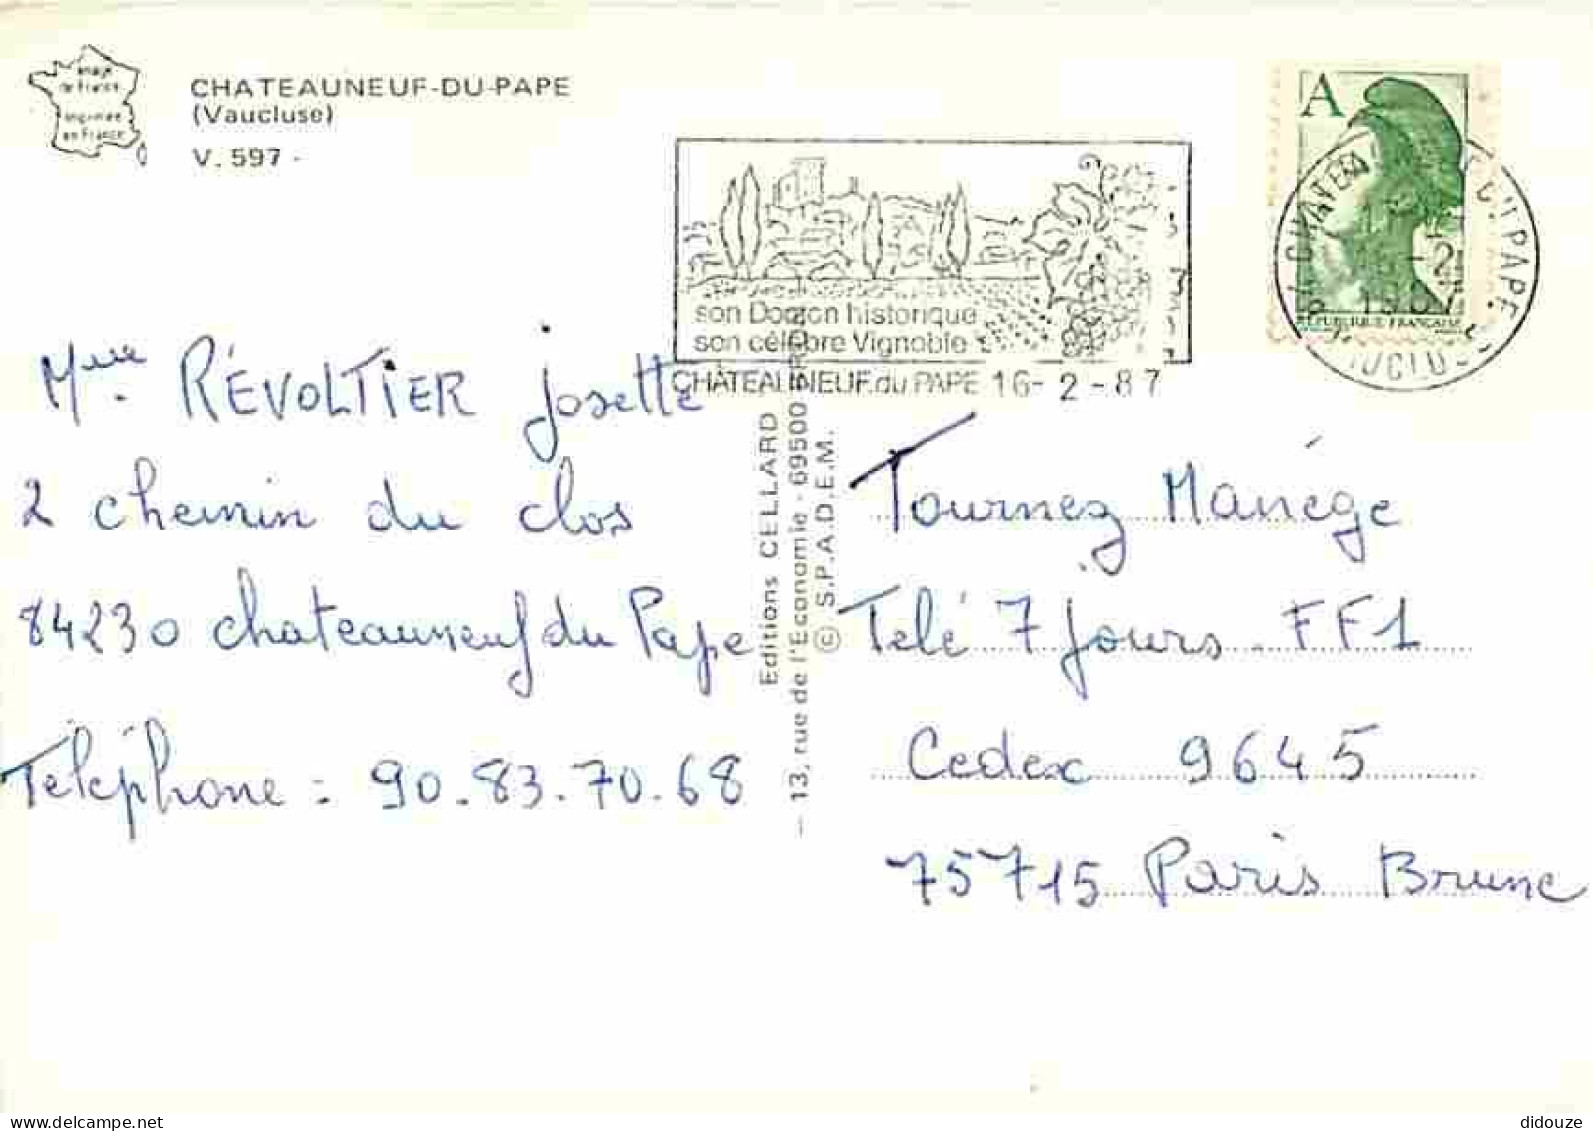 Image
de France
imprimée
en France
CHATEAUNEUF-DU-PAPE
(Vaucluse)
V. 597 -
A
REPUBLIQUE FRANÇAISE
son Donjon historique
son célèbre Vignoble
CHÂTEAUNEUF.du PAPE 16-2-87
Mme. RÉVOLTIER Josette
2 chemin du clos
84230 chateauneuf du Pape
Teléphone : 90.83.70.68
Editions CELLARD
— 13, rue de l'Economie - 69500 BRON
© S.P.A.D.E.M.
Tournez Manége
Telé 7 Jours. FF1
Cedex 9645
75715 Paris Brune
delcampe.net
didouze